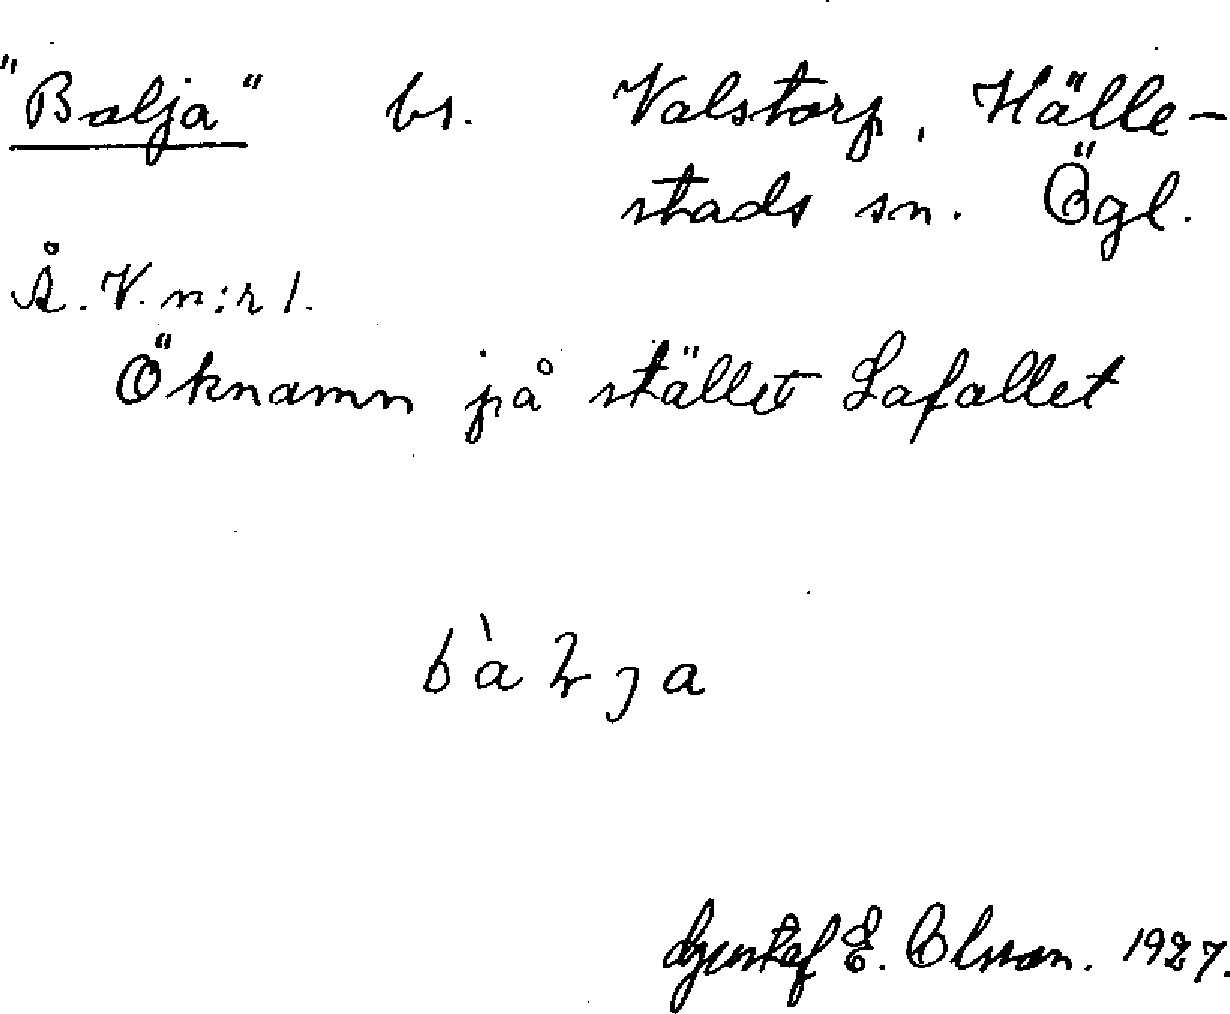 "Balja" bs. Valstorp, Hälle-
stads sn. Ögl.
Å.V. n:r 1.
Öknamn på stället Lafallet
Gustaf E. Olsson. 1927.